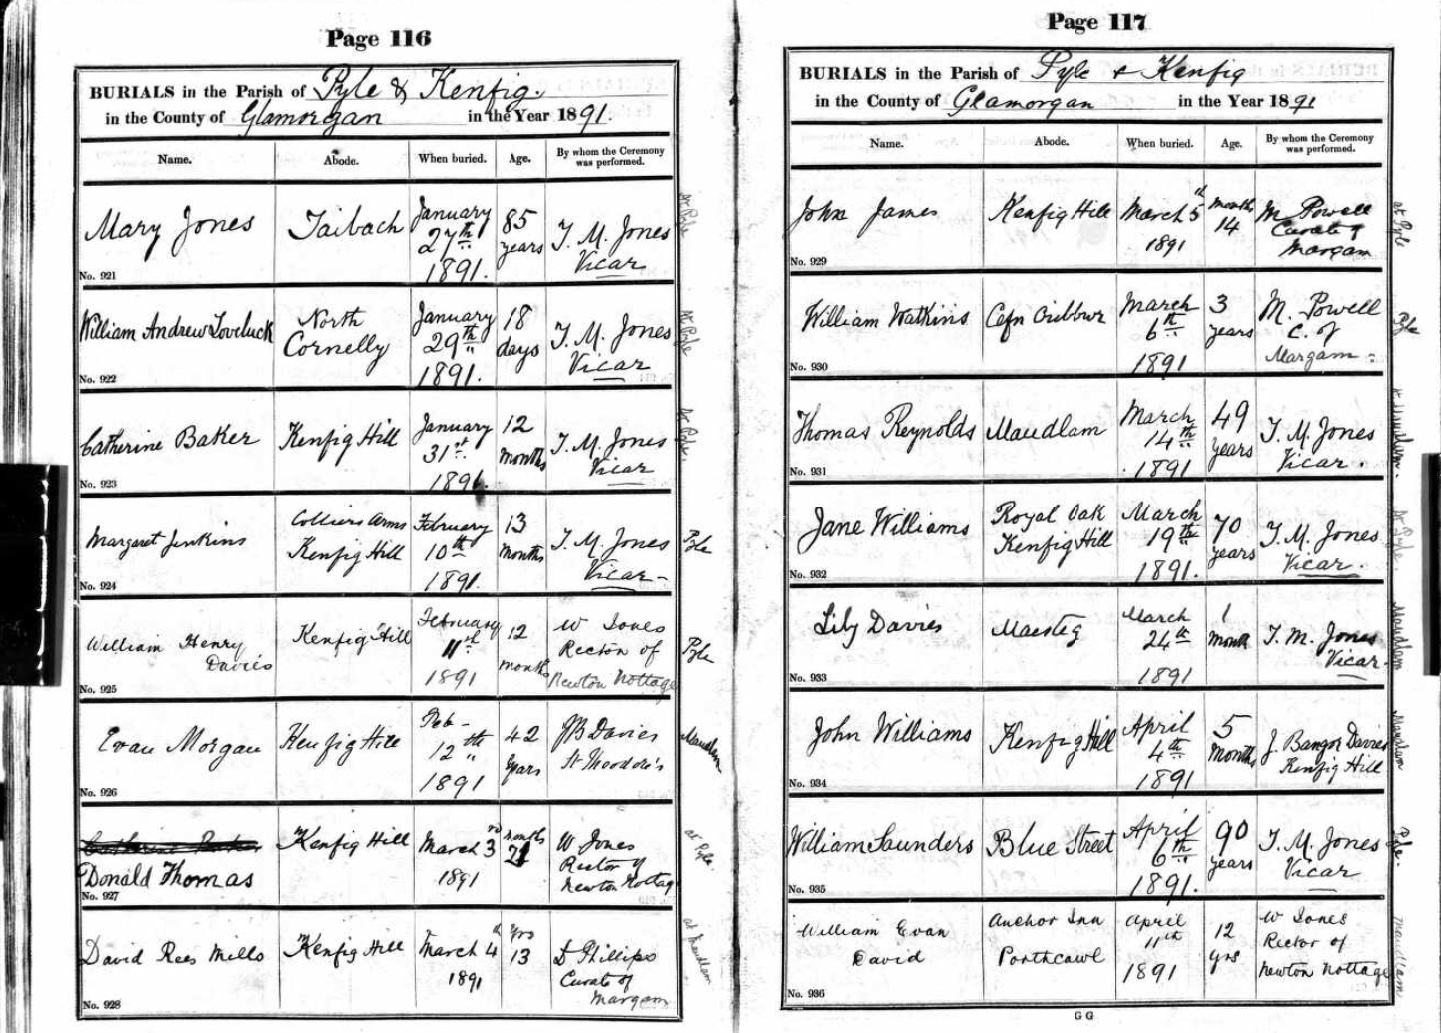 Page 116
BURIALS in the Parish of Pyle & Kenfig.
in the County of Glamorgan in the Year 1891.
Name. Abode. When buried. Age. By whom the Ceremony was performed.
Mary Jones
No. 921
Taibach
January
27th
1891.
85
years
T. M. Jones
Vicar
At Pyle
William Andrew Loveluck
No. 922
North
Cornelly
January
29th
1891.
18
days
T. M. Jones
Vicar
At Pyle
Catherine Baker
No. 923
Kenfig Hill
January
31st
1891.
12
months
T. M. Jones
Vicar
At Pyle.
Margaret Jenkins
No. 924
Colliers Arms
Kenfig Hill
February
10th
1891.
13
months
T. M. Jones
Vicar
Pyle
William Henry
Davies
No. 925
Kenfig Hill
February
11th
1891
12
months
W Jones
Rector of
Newton Nottage
Pyle
Evan Morgan
No. 926
Kenfig Hill
Feb -
12th
1891
42
years
JB Davies
St Theodore's
Maudlam
Donald Thomas
No. 927
Kenfig Hill
March 3rd
1891
months
W Jones
Rector of
Newton Nottage
at Pyle.
David Rees Mills
No. 928
Kenfig Hill
March 4th
1891
yrs
13
D Phillips
Curate of
Margam
at Maudlam
Page 117
BURIALS in the Parish of Pyle & Kenfig
in the County of Glamorgan in the Year 1891
Name. Abode. When buried. Age. By whom the Ceremony was performed.
John James
No. 929
Kenfig Hill
March 5th
1891
months
14
M Powell
Curate of
Margam
at Pyle
William Watkins
No. 930
Cefn Cribbwr
March
6th
1891
3
years
M. Powell
C. of
Margam
Pyle
Thomas Reynolds
No. 931
Maudlam
March
14th
1891
49
years
T. M. Jones
Vicar.
At Maudlam.
Jane Williams
No. 932
Royal Oak
Kenfig Hill
March
19th
1891.
70
years
T. M. Jones
Vicar.
At Pyle.
Lily Davies
No. 933
Maesteg
March
24th
1891
1
month
T. M. Jones
Vicar
Maudlam
John Williams
No. 934
Kenfig Hill
April
4th
1891
5
Months
J. Bangor Davies
Kenfig Hill
Maudlam
William Saunders
No. 935
Blue Street
April
6th
1891.
90
years
T. M. Jones
Vicar
Pyle.
William Evan
David
No. 936
Anchor Inn
Porthcawl
April
11th
1891
12
yrs
W Jones
Rector of
Newton Nottage
Maudlam
G G